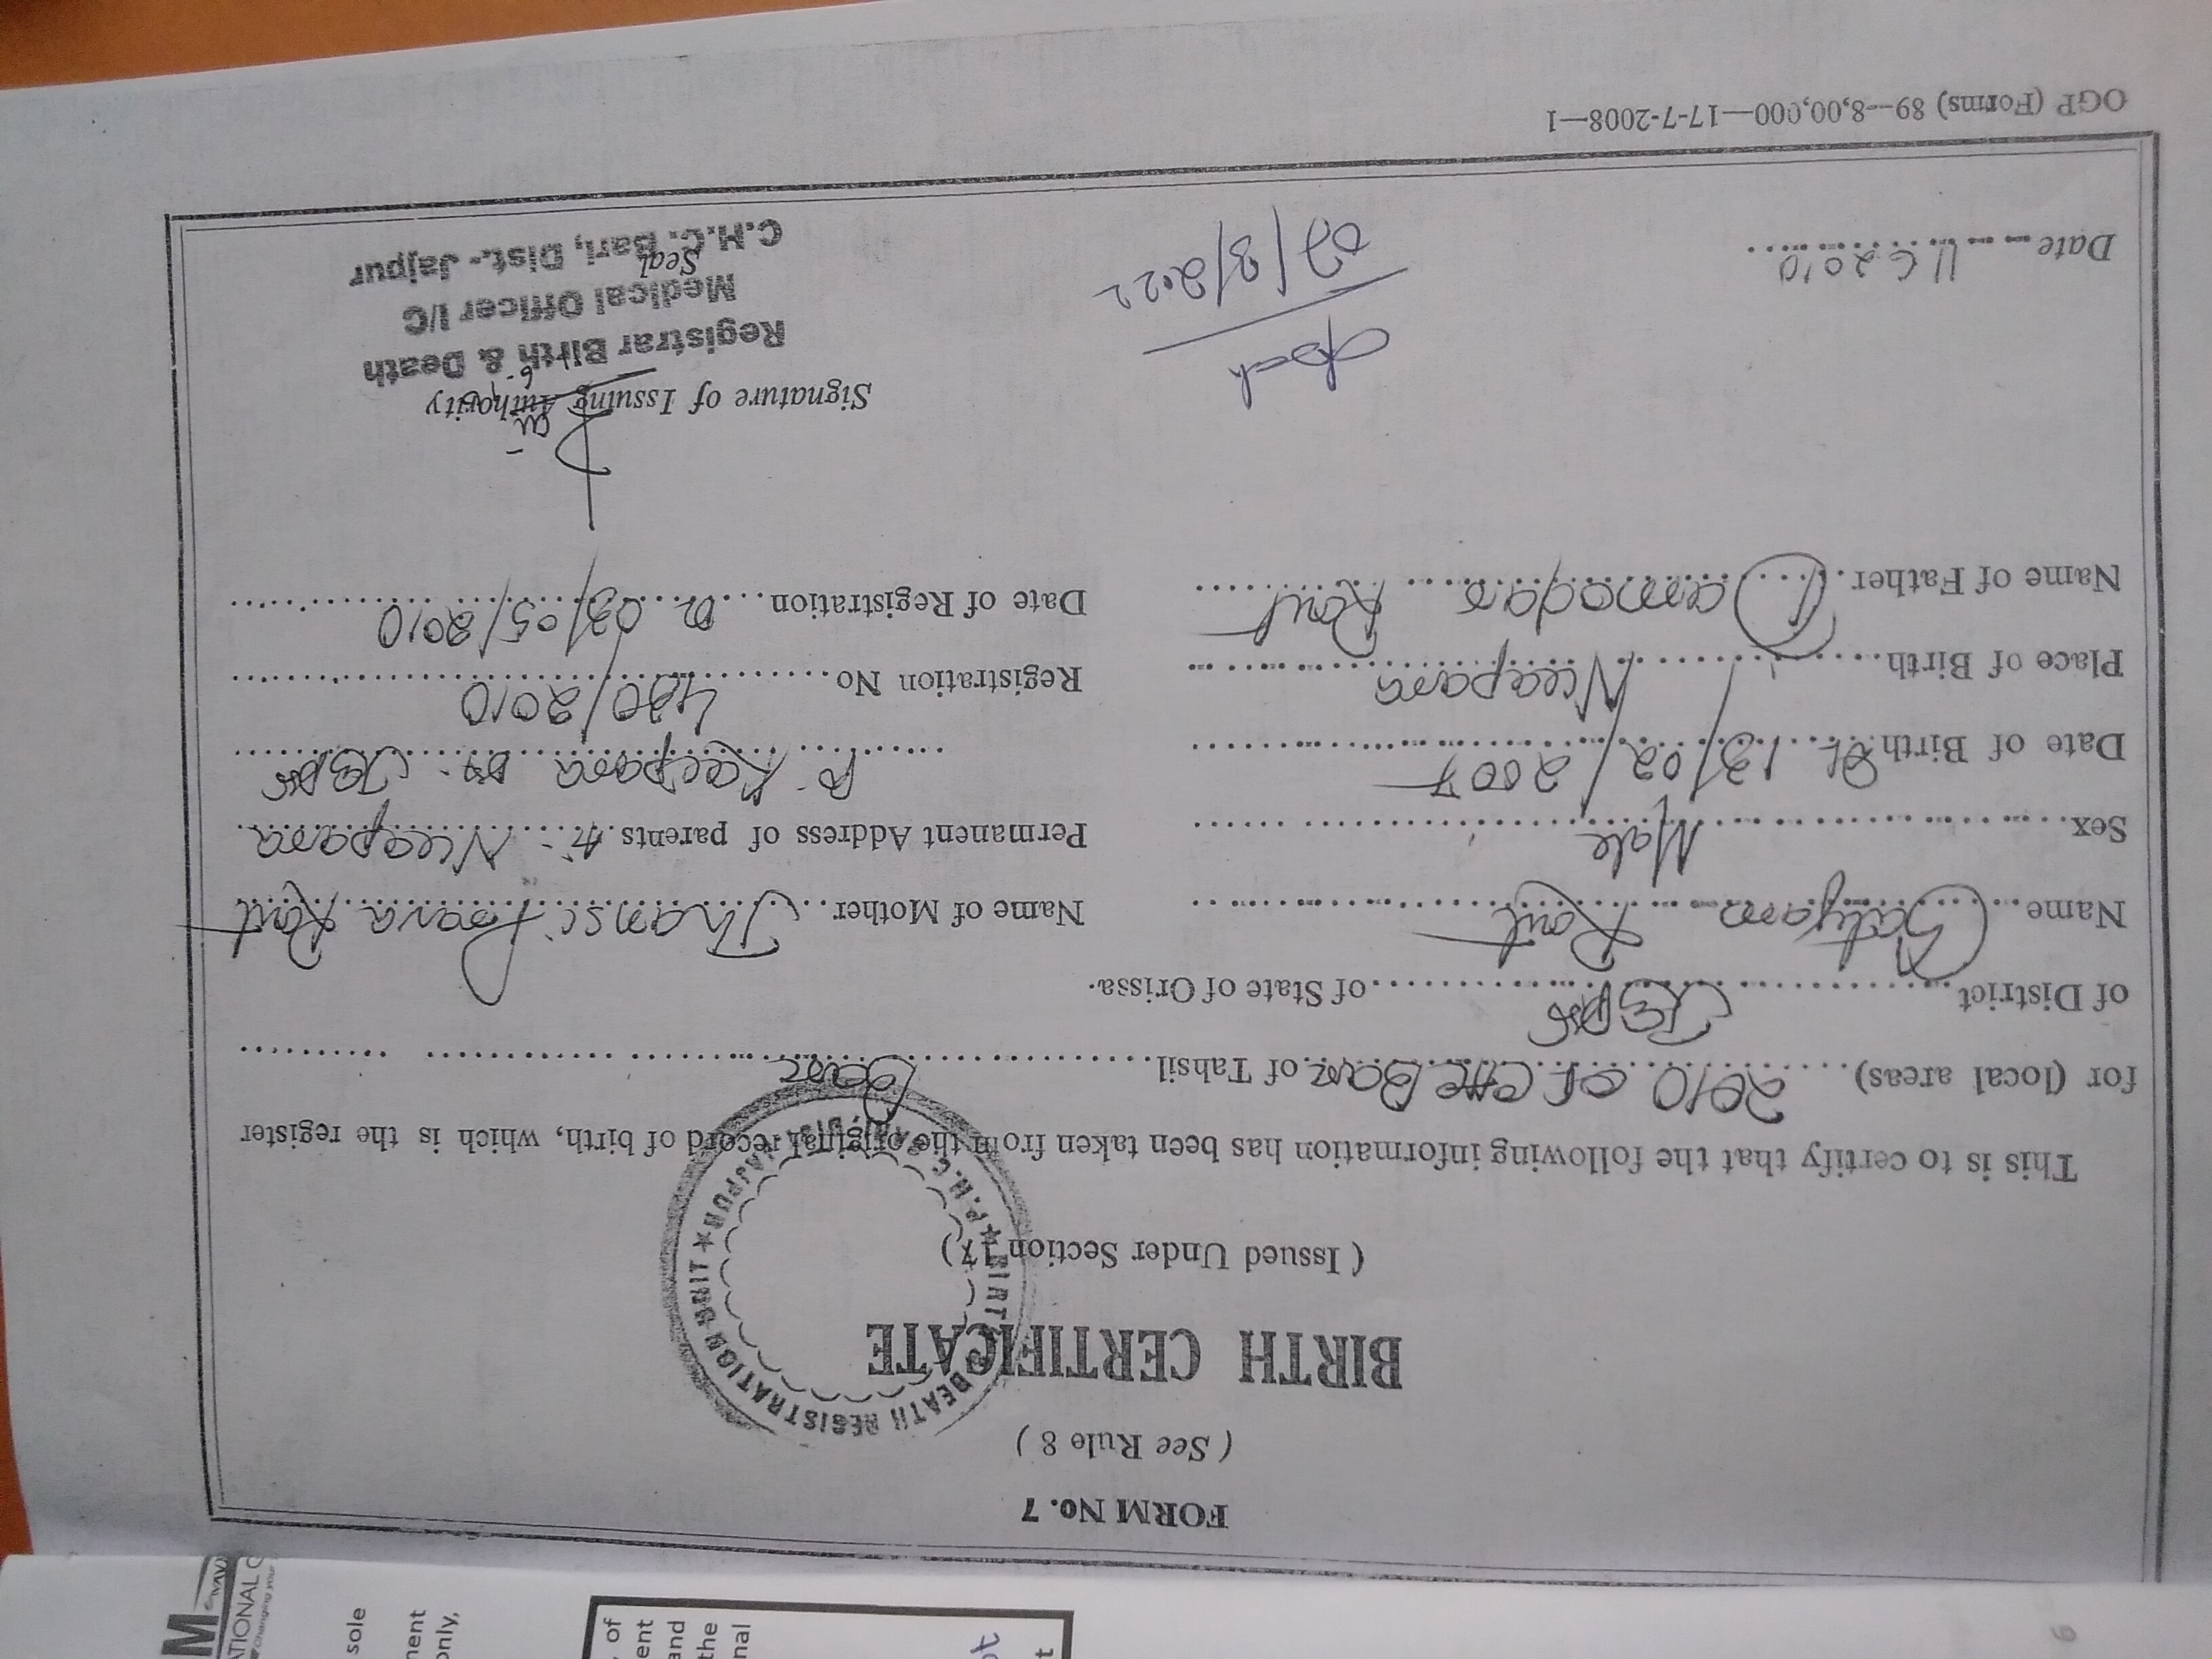 FORM No. 7
( See Rule 8 )
BIRTH CERTIFICATE
( Issued Under Section 17 )
BIRTH & DEATH REGISTRATION UNIT ★ P.H.C. DIST. JAJPUR ★
This is to certify that the following information has been taken from the original record of birth, which is the register
for (local areas) 2010 of CHC Bari of Tahsil Bari
of District of State of Orissa.
Name Satyam Rout
Sex Male
Date of Birth Dt. 13/02/2007
Place of Birth Neeapara
Name of Father Damodar Rout
Name of Mother Jhansi Rout
Permanent Address of parents At: Neeapara
Registration No 420/2010
Date of Registration Dt 03/05/2010
Signature of Issuing Authority
Registrar Birth & Death
Medical Officer I/C
Seal
C.H.C. Bari, Dist.- Jajpur
Date 11 6 2010
02/3/2022
OGP (Forms) 89--8,00,000—17-7-2008—1
M
ATIONAL
Changing your
sole
ment
only,
of
ent
and
the
nal